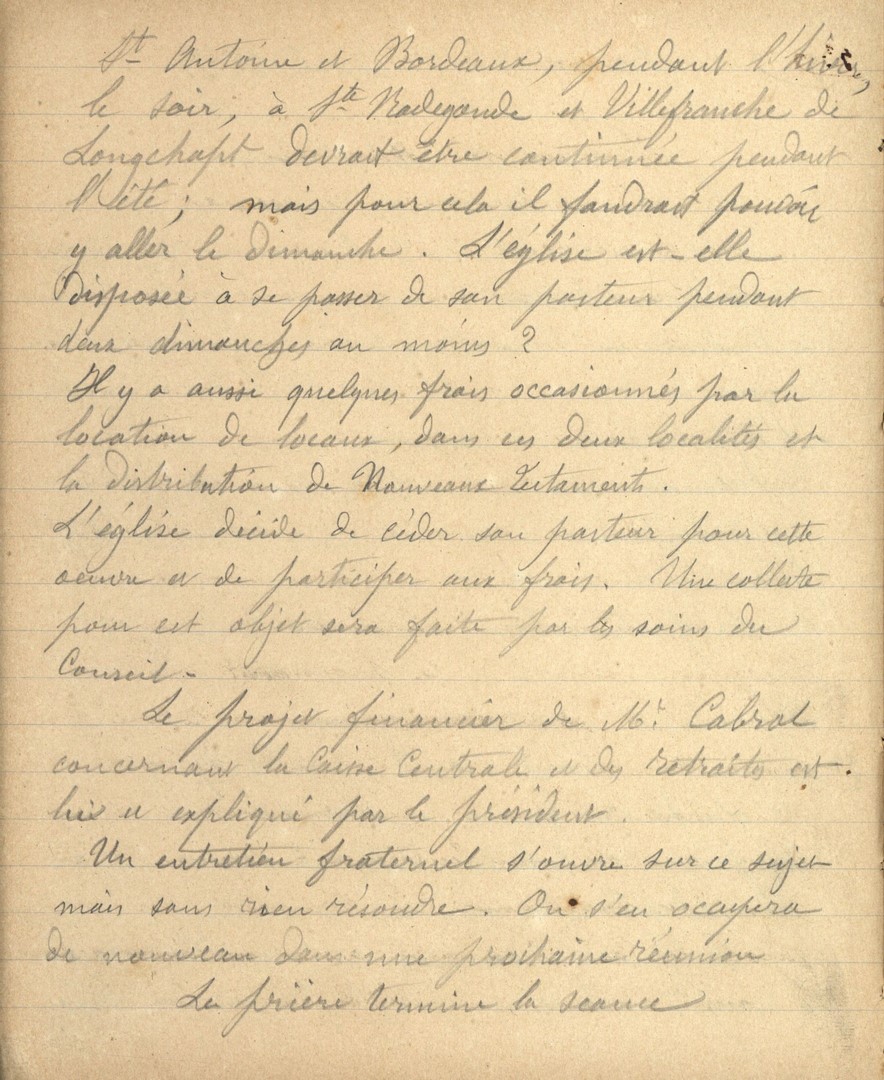 St Antoine et Bordeaux, pendant l'hiver,
le soir, à Ste Radegonde et Villefranche de
Longchapt devrait être continuée pendant
l'été ; mais pour cela il faudrait pouvoir
y aller le dimanche. L'église est-elle
disposée à se passer de son pasteur pendant
deux dimanches au moins ?
Il y a aussi quelques frais occasionnés par la
location de locaux, dans ces deux localités et
la distribution de Nouveaux Testaments.
L'église décide de céder son pasteur pour cette
oeuvre et de participer aux frais. Une collecte
pour cet objet sera faite par les soins du
Conseil-
Le projet financier de Mr. Cabrol
concernant la Caisse Centrale et des retraites est.
lu et expliqué par le président.
Un entretien fraternel s'ouvre sur ce sujet
mais sans rien résoudre. On s'en occupera
de nouveau dans une prochaine réunion
La prière termine la séance